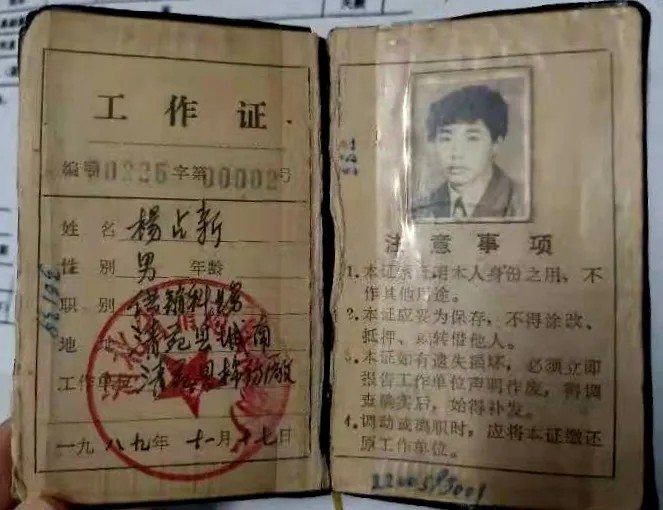 工作证
编号0226字第00002号
姓名 杨占新
性别 男 年龄
职别 供销科
地址 清苑县
工作单位 清苑县棉纺厂
一九八九年十一月十七日
注意事项
1.本证系证明本人身份之用,不
作其他用途。
2.本证应妥为保存,不得涂改、
抵押、或转借他人。
3.本证如有遗失损坏,必须立即
报告工作单位声明作废,调
查确实后,始得补发。
4.调动或离职时,应将本证缴还
原工作单位。